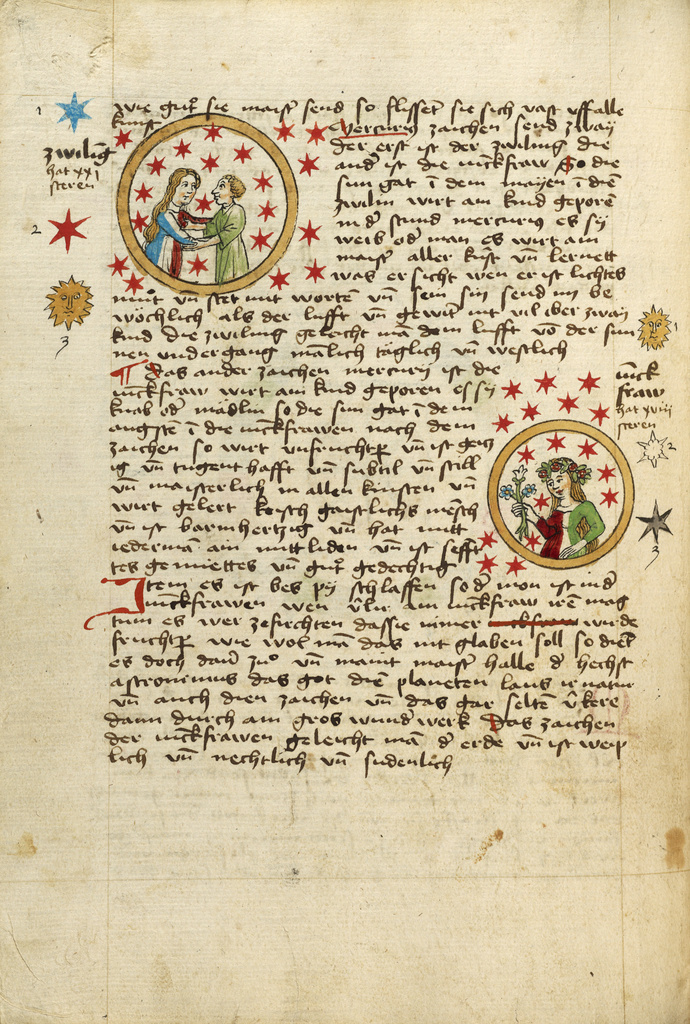 wie gut sie maister send so flisset sie sich vast vff alle
kunst
Mercurij zaichen send zway
der erst ist der zwiling die
ander ist die iunckfraw So die
sun gat i dem mayen i die
zwilin wirt ain kind geporē
in der stund mercurius es sy
weib od man es wirt ain
maister aller küst vn lernett
was er sicht wen er ist lichtes
zwiling
hat xxi
steren
1
2
3
mut vn stet mit wortē vn sein sin send im be
wöchlich als der lufft vn gewint mit vil iber zway
kind die zwiling geleicht mā dem lufft vo der sun
nen vndergang mālich täglich vn westlich
Das ander zaichen mercurij ist die
iunckfraw wirt ain kind geporen es sy
knab od mädlin so die sun gat i dem
augstē i die iunckfrawen nach dem
zaichen so wirt vnfruchtper vn ist geitz
ig vn tugenthafft vn subtil vn still
vn maisterlich in allen künsten vn
wirt gelert keisch gaistlichs mēsch
vn ist barmhertzig vn hat mitt
iederma ain mitliden vn ist sefft
tes gemiettes vn gut gedechtig
iunck
fraw
hat xviii
steren
1
2
3
Item es ist bes py schlaffen so d mon ist in d
iunckfrawen wen vber ain iunckfraw irē mag
tum es wer zefirchten das sie nimer iunckfraw wirde
fruchtper wie wol mā das nit glaben soll so dient
es doch darzuo vn maint maister halle d hechst
astronimus das got den planeten laus ir natur
vn auch dien zaichen vn das gar selten v̂kere
dann durch ain gros wunderwerk Das zaichen
der iunckfrawen geleicht mā d erde vn ist weip
lich vn nechtlich vn sudenlich